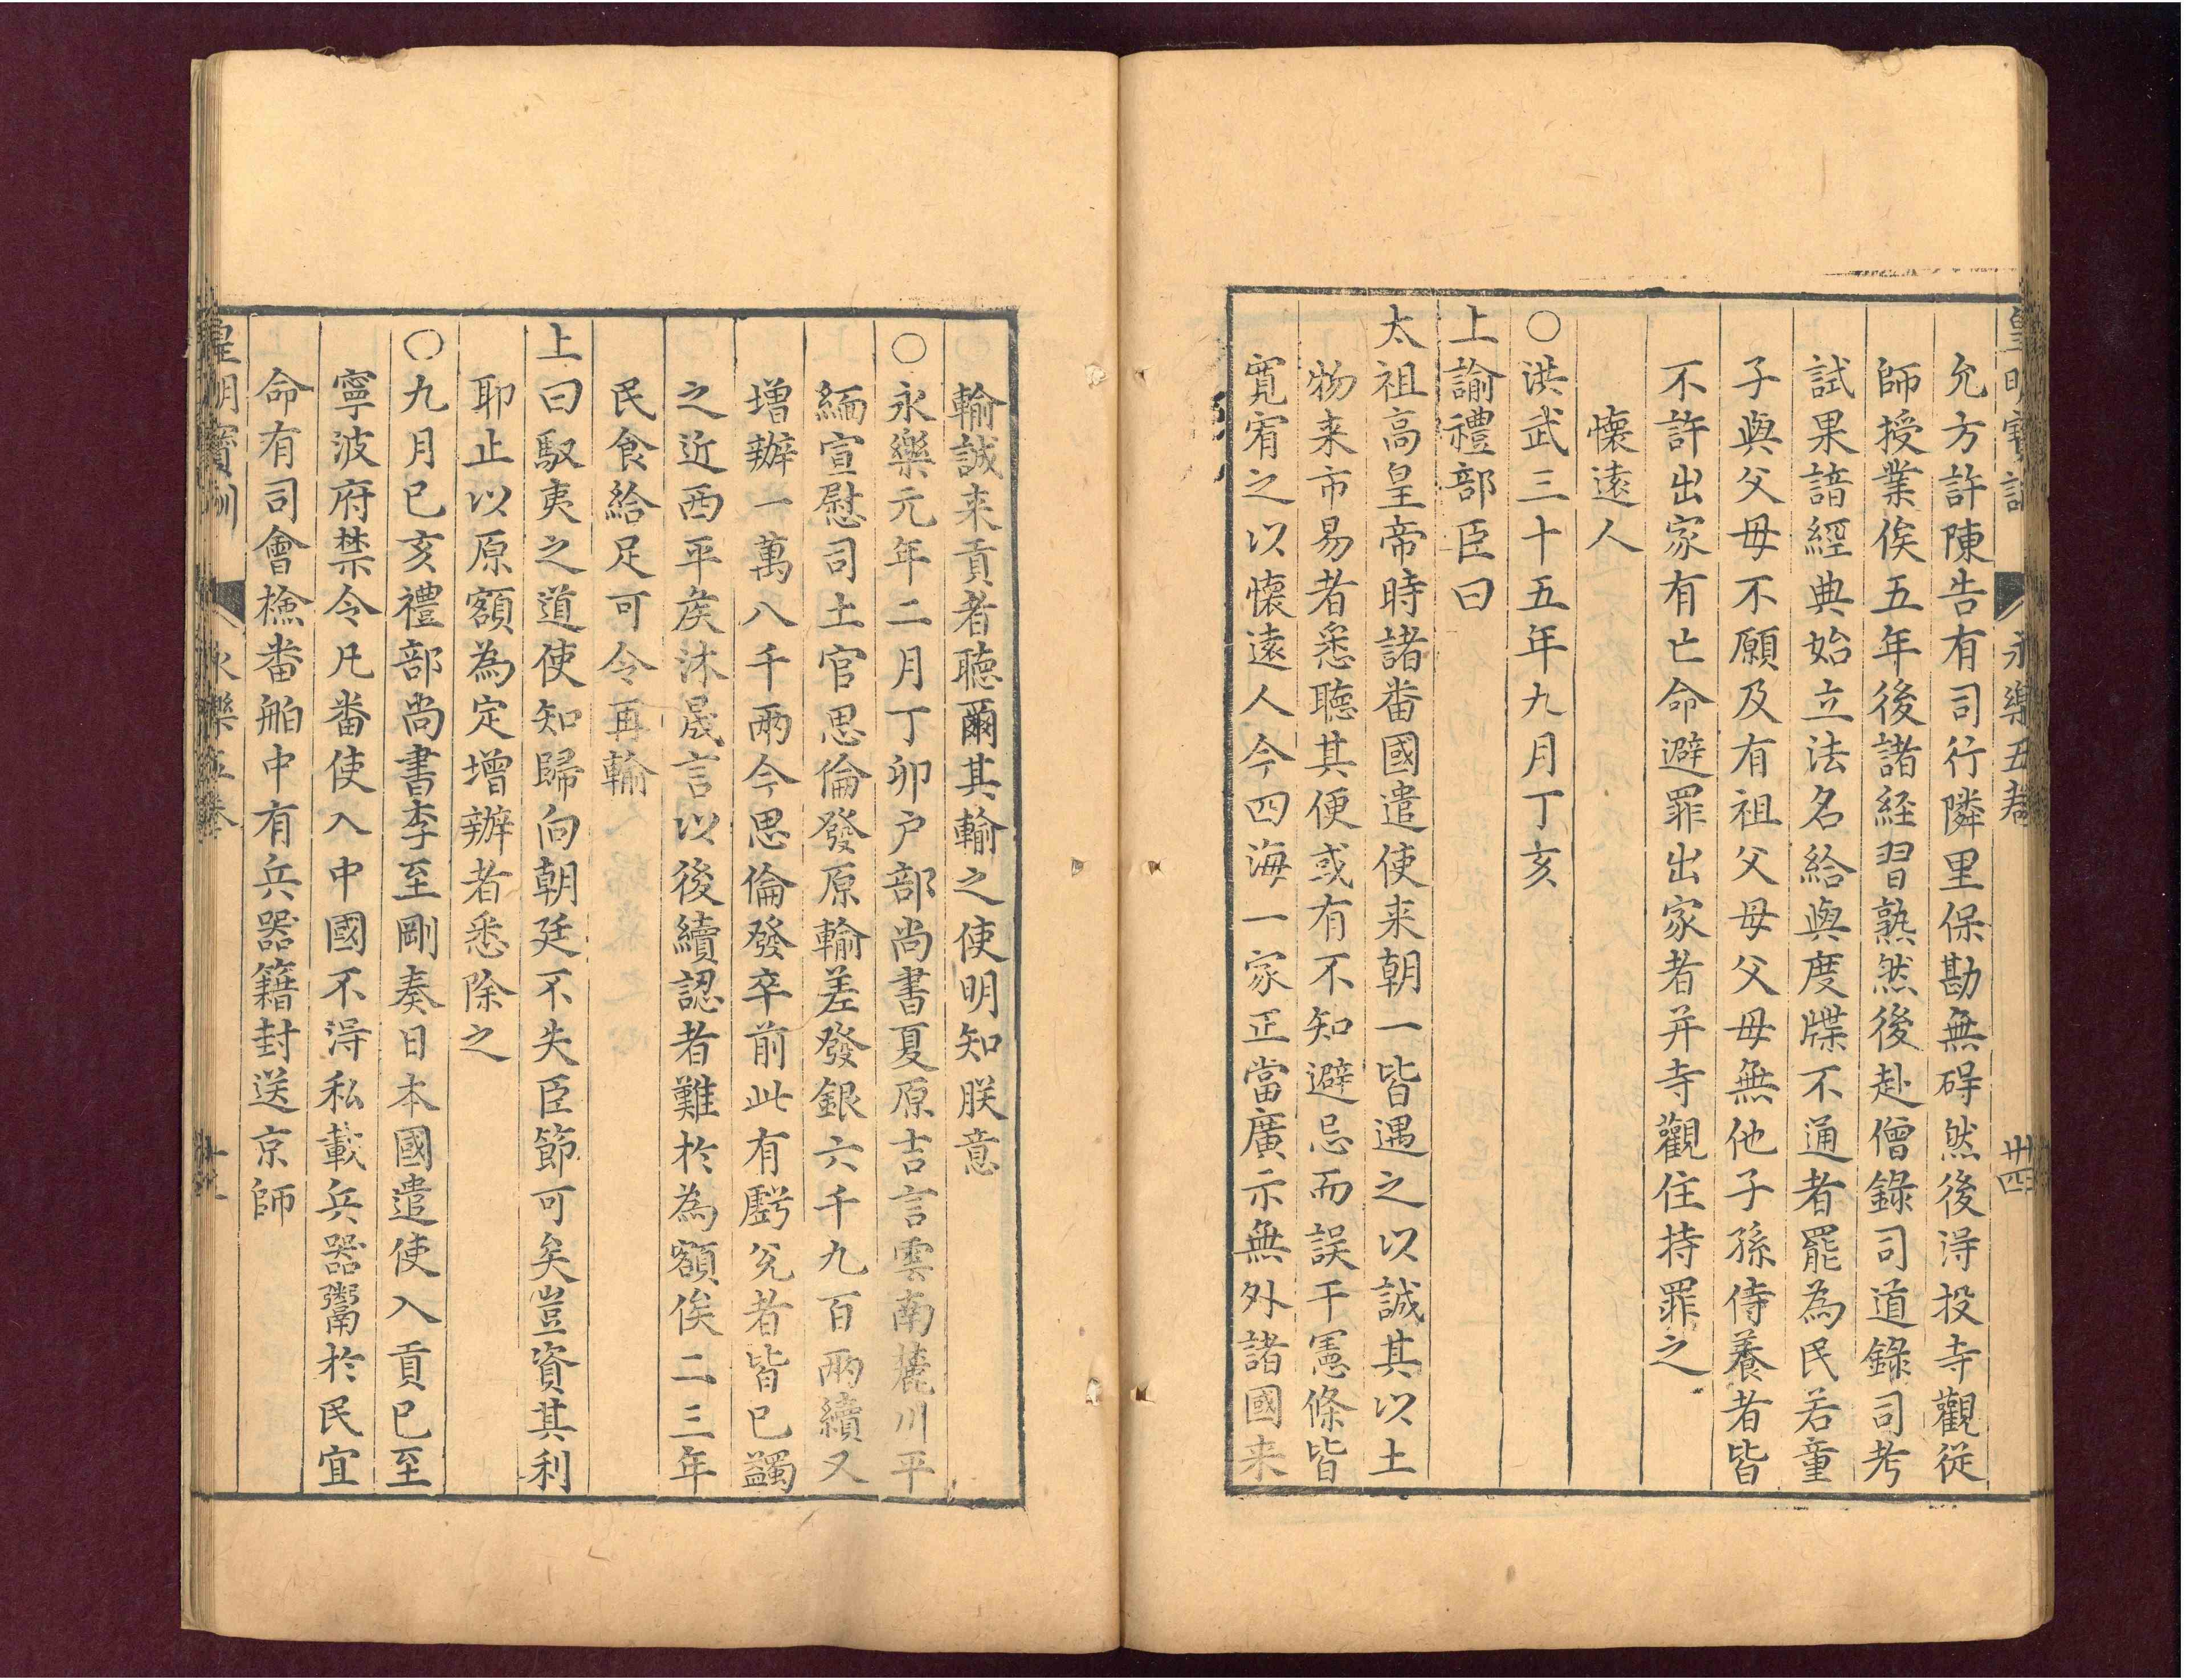 皇明寶訓 永樂五卷 卅四
允方許陳告有司行隣里保勘無碍然後淂投寺觀從
師授業俟五年後諸経習熟然後赴僧錄司道錄司考
試果諳經典始立法名給與度牒不通者罷為民若童
子與父母不願及有祖父母父母無他子孫侍養者皆
不許出家有亡命避罪出家者并寺觀住持罪之
懷遠人
○洪武三十五年九月丁亥
上諭禮部臣曰
太祖高皇帝時諸番國遣使来朝一皆遇之以誠其以土
物来市易者悉聽其便或有不知避忌而誤干憲條皆
寬宥之以懷遠人今四海一家正當廣示無外諸國来
輸誠来貢者聽爾其輸之使明知朕意
○永樂元年二月丁卯户部尚書夏原吉言雲南麓川平
緬宣慰司土官思倫發原輸差發銀六千九百兩續又
增辦一萬八千兩今思倫發卒前此有虧兊者皆已蠲
之近西平矦沐晟言以後續認者難於為額俟二三年
民食給足可令再輸
上曰馭夷之道使知歸向朝廷不失臣節可矣豈資其利
耶止以原額為定增辦者悉除之
○九月已亥禮部尚書李至剛奏日本國遣使入貢已至
寧波府禁令凡番使入中國不淂私載兵器鬻於民宜
命有司會檢番舶中有兵器籍封送京師
皇明寶訓 永樂五卷